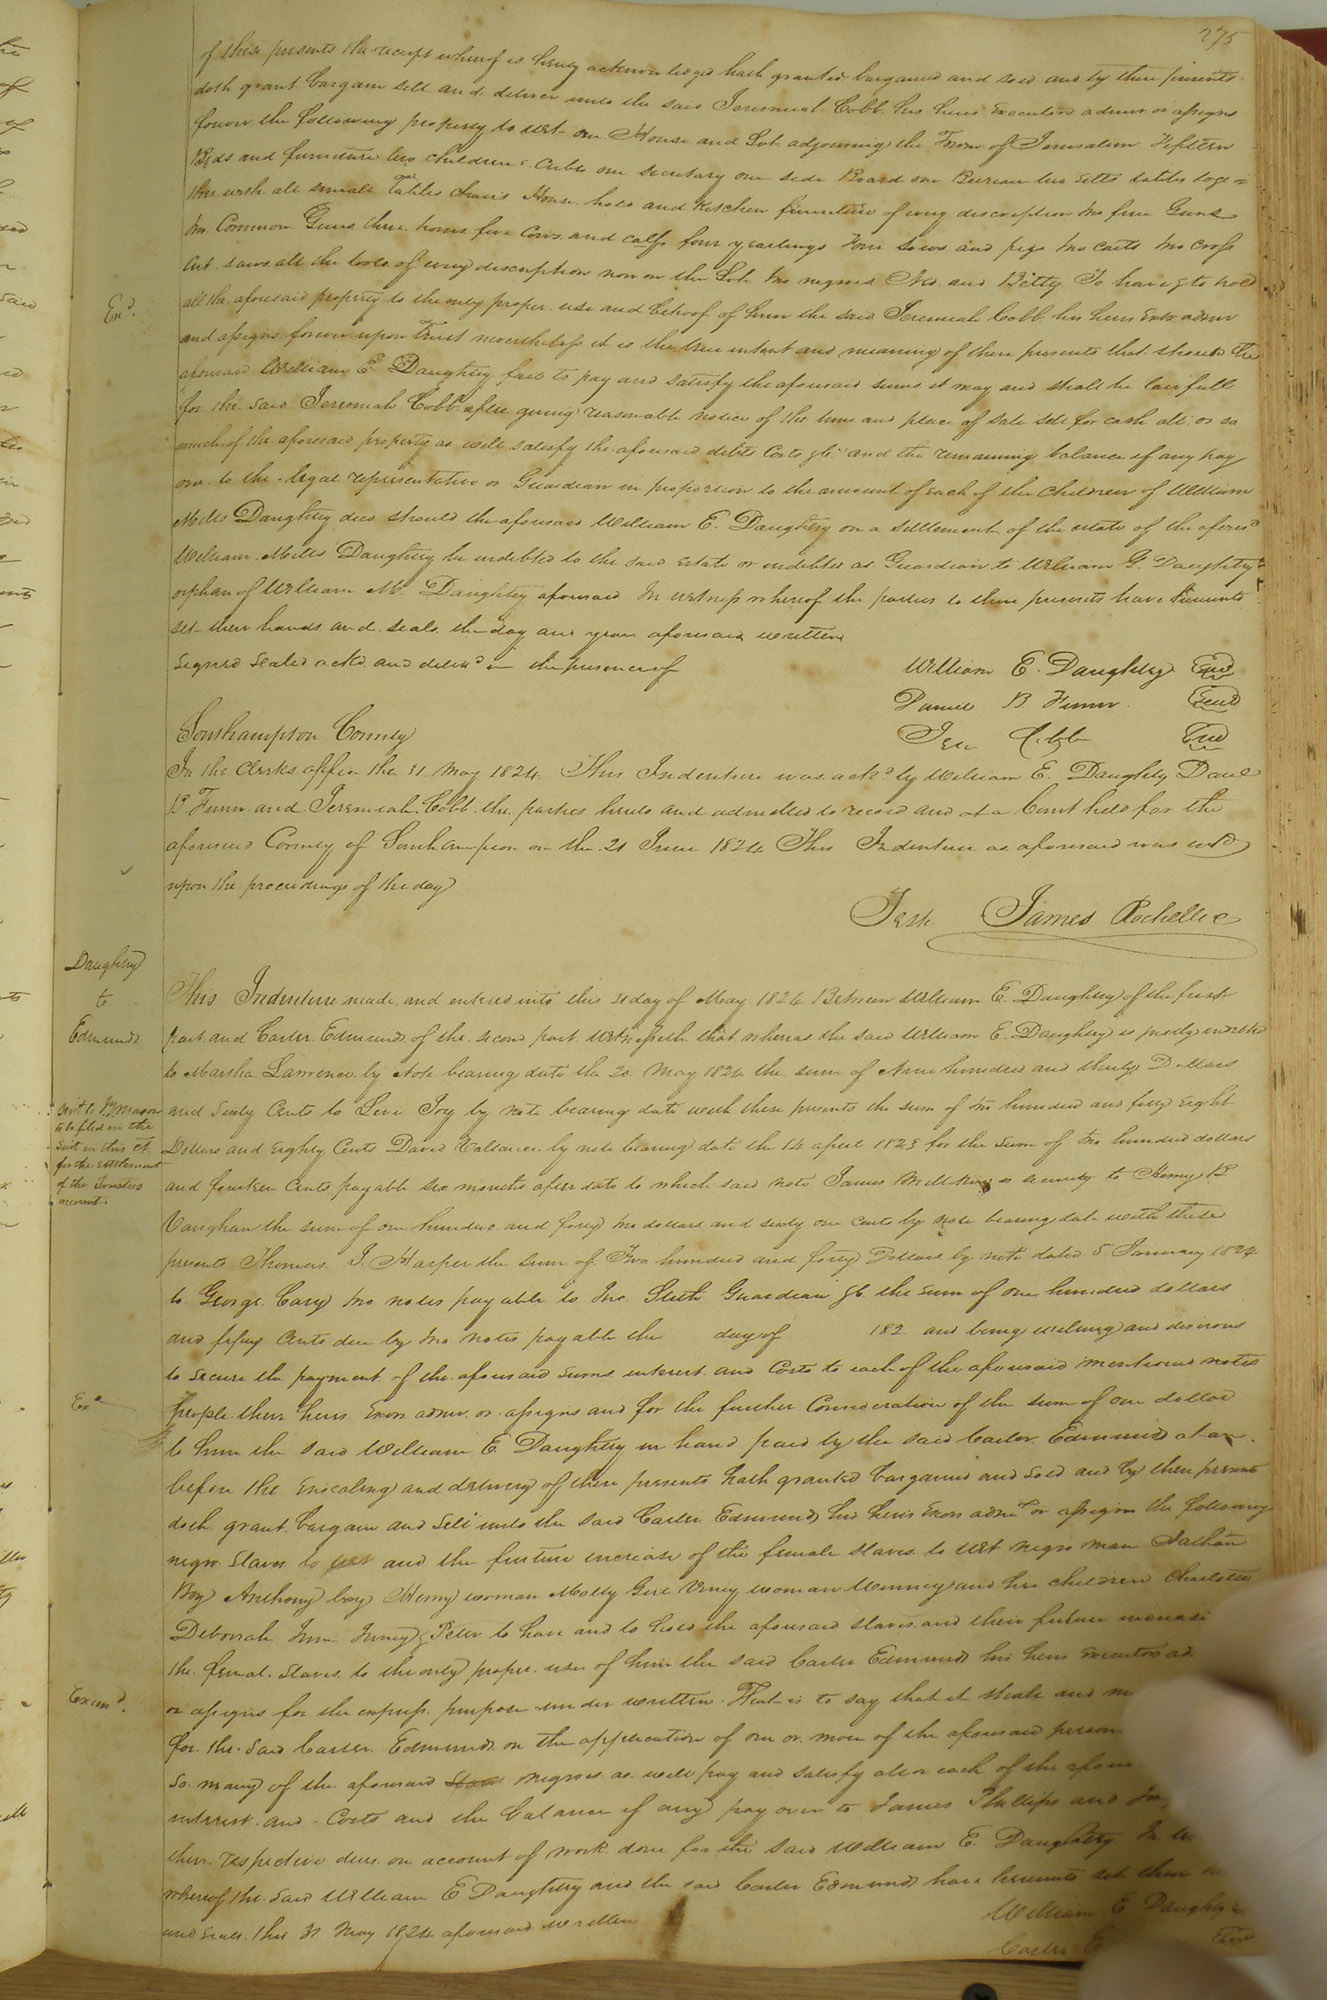 275
of these presents the receipt whereof is hereby acknowledged hath granted bargained and sold and by these presents
doth grant bargain sell and deliver unto the said Jeremiah Cobb his heirs executors admrs or assigns
forever the following property to wit one House and Lot adjoining the Town of Jerusalem Fifteen
Beds and furniture two childrens Cribs one secretary one side Board one Bureau two setts tables toge=
ther with all small Tables chairs House hold and Kitchen furniture of every discription two fine Guns
two Common Guns three horses five Cows and calfs four yearlings four sows and pigs two carts two cross
cut saws all the tools of every discription now on the Lot two negroes Ned and Betty To have & to hold
all the aforesaid property to the only proper use and behoof of him the said Jeremiah Cobb his heirs Exors admrs
and assigns forever upon Trust nevertheless it is the true intent and meaning of these presents that should the
aforesaid William E. Daughtry fail to pay and satisfy the aforesaid sums it may and shall be lawfull
for the said Jeremiah Cobb after giving reasonable notice of the time and place of sale sell for cash all or so
much of the aforesaid property as will satisfy the aforesaid debts Costs &c. and the remaining balance if any pay
over to the legal representative or Guardian in proportion to the amount of each of the children of William
Mills Daughtry decd should the aforesaid William E. Daughtry on a settlement of the estate of the aforesd
William Mills Daughtry be indebted to the said estate or indebted as Guardian to William G. Daughtry
orphan of William M. Daughtry aforesaid In witness whereof the parties to these presents have hereunto
set their hands and seals the day and year aforesaid written
Signed Sealed ackd and delivd in the presence of
William E. Daughtry Seal
Daniel B Finn Seal
Jer. Cobb Seal
Southampton County
In the Clerks office the 31. May 1824. This Indenture was ackd by William E. Daughtry Danl
B Finn and Jeremiah Cobb the parties hereto and admitted to record and at a Court held for the
aforesaid County of Southampton on the 21 June 1824 This Indenture as aforesaid was
upon the proceedings of the day
Test. James Rochelle
Exd.
Daughtry
to
Edmunds
This Indenture made and entered into this 31 day of May 1824 Between William E. Daughtry of the first
part and Carter Edmunds of the second part Witnesseth that whereas the said William E. Daughtry is justly indebted
to Martha Lawrence by Note bearing date the 20 May 1824 the sum of hundred and thirty Dollars
and Sixty Cents to Levi Joy by note bearing date with these presents the sum of two hundred and fifty Eight
Dollars and Eighty Cents David Vallance by note bearing date the 14 april 1823 for the sum of two hundred dollars
and fourteen Cents payable six months after date to which said note James is security to Henry B
Vaughan the sum of one hundred and forty two dollars and sixty one cents by note bearing date with these
presents Thomas J. Harper the sum of Two hundred and forty Dollars by note dated 5 January 1824
to George Cary two notes payable to Jno. Guardian &c. the sum of one hundred dollars
and fifty Cents due by two notes payable the day of 182 and being willing and desirous
to secure the payment of the aforesaid sums interest and Costs to each of the aforesaid mentioned notes
people their heirs Exors admrs or assigns and for the further Consideration of the sum of one dollar
to him the said William E. Daughtry in hand paid by the said Carter Edmunds at or
before the Ensealing and delivery of these presents hath granted bargained and sold and by these presents
doth grant bargain and Sell unto the said Carter Edmunds his heirs Exors admrs or assigns the following
negro Slaves to wit and the further increase of the female slaves to wit negro man Nathan
Boy Anthony boy Henry woman Molly Girl Viney woman and her children Charlotte
Deborah Jinney & Peter to have and to hold the aforesaid slaves and their further increase
the femal. Slaves to the only proper use of him the said Carter Edmunds his heirs executors ad
or assigns for the express purpose under written. That is to say that it shall and m
for the said Carter Edmunds on the application of one or more of the aforesaid person
So many of the aforesaid negroes as will pay and satisfy all or each of the afores
interest and Costs and the balance if any pay over to James Phillips and
their respective dues on account of work done for the said William E. Daughtry In
whereof the said William E Daughtry and the said Carter Edmunds have hereunto set their
and seals this 31 May 1824 aforesaid written
William E Daughtry
Carter E
Sent to
to be filed in the
Suit in this Ct.
for the settlement
of the Trustees
account.
Exd
Examd.